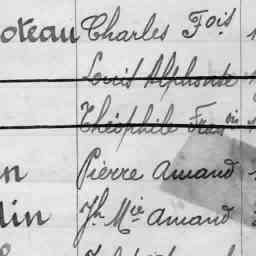 oteau Charles Fois
Louis Alphonse
Théophile Frois
n Pierre Amand
din Jh Mie Amand